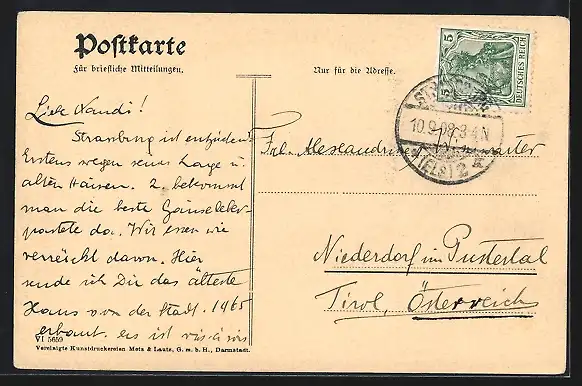 Postkarte
Für briefliche Mitteilungen.
Nur für die Adresse.
5
5
DEUTSCHES REICH
10.9.08.3-4N
(ELS) 2
Liebe Xandi!
Strassburg ist entzückend!
Erstens wegen seiner Lage u.
alten Häusern. 2. bekommt
man die beste Gänseleber-
pastete da. Wir essen wie
verrückt davon. Hier
sende ich Dir das älteste
Haus von der Stadt. 1465
erbaut. es ist vis-à-vis
Frl. Alexandrine
Niederdorf im Pustertal
Tirol, Österreich
VI 5659
Vereinigte Kunstdruckereien Metz & Lautz, G. m. b. H., Darmstadt.